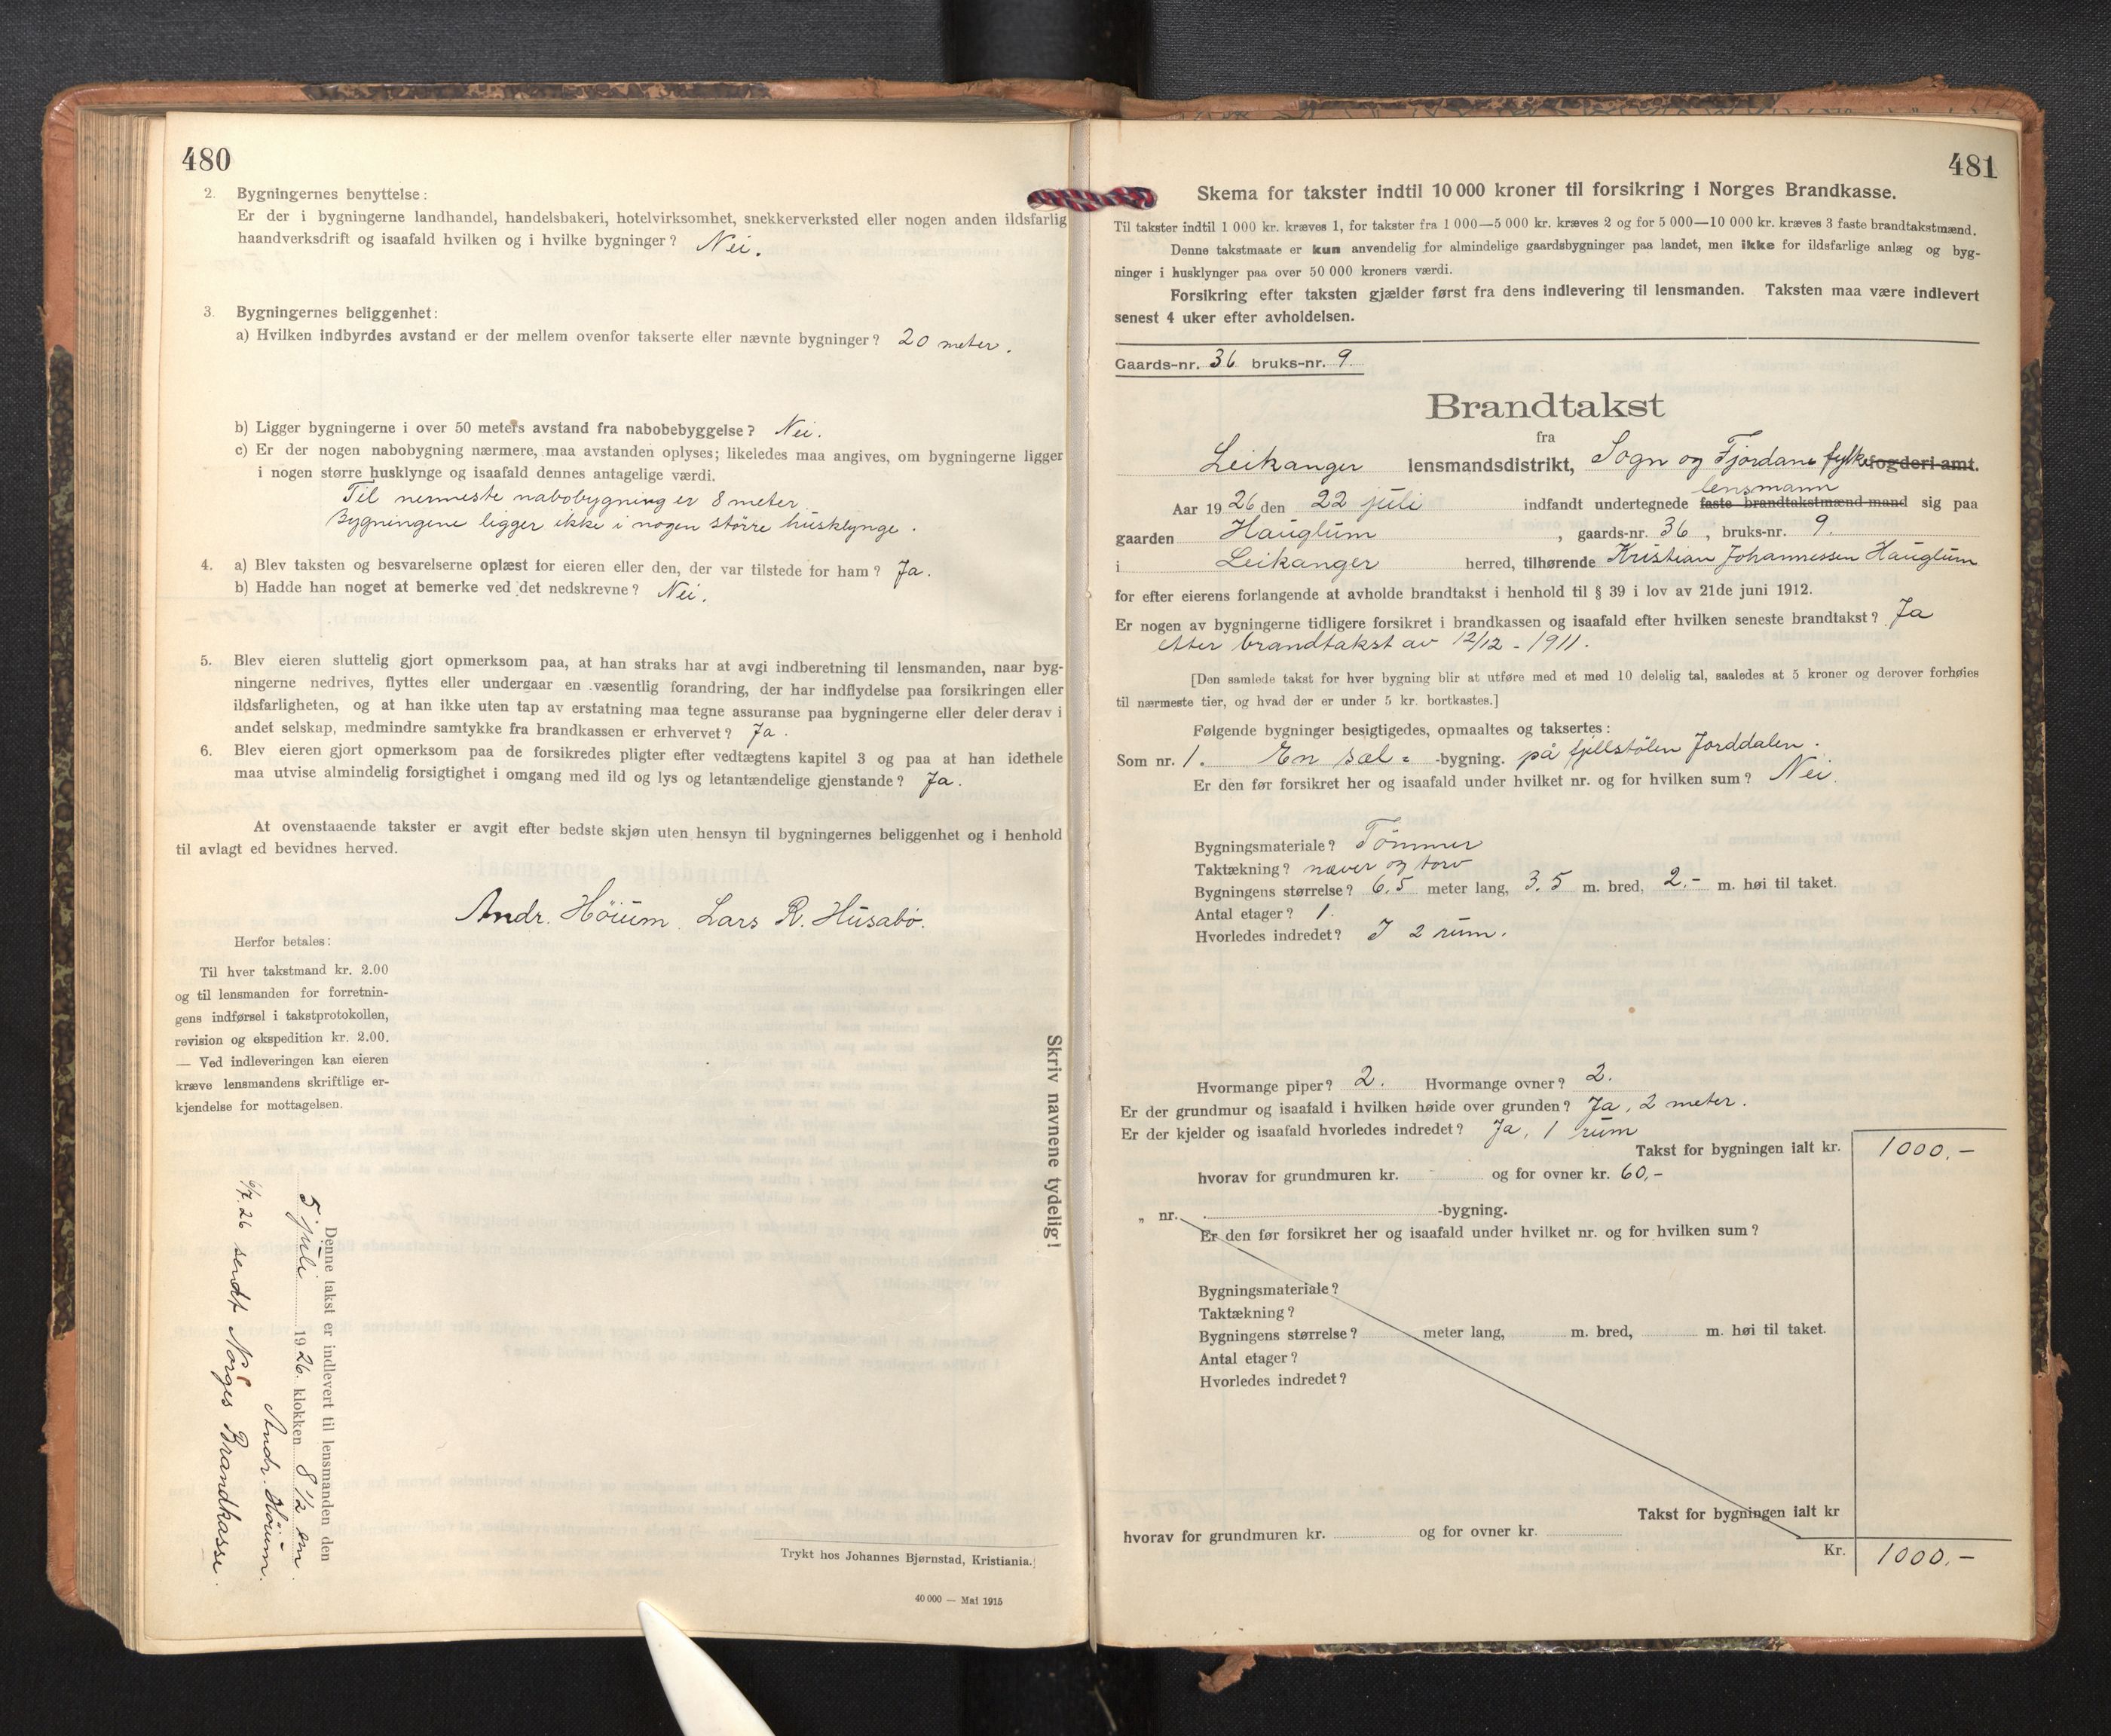 480
2. Bygningernes benyttelse:
Er der i bygningerne landhandel, handelsbakeri, hotelvirksomhet, snekkerverksted eller nogen anden ildsfarlig
haandverksdrift og isaafald hvilken og i hvilke bygninger? Nei.
3. Bygningernes beliggenhet:
a) Hvilken indbyrdes avstand er der mellem ovenfor takserte eller nævnte bygninger? 20 meter.
b) Ligger bygningerne i over 50 meters avstand fra nabobebyggelse? Nei.
c) Er der nogen nabobygning nærmere, maa avstanden oplyses; likeledes maa angives, om bygningerne ligger
i nogen større husklynge og isaafald dennes antagelige værdi.
Til nermeste nabobygning er 8 meter
Bygningene ligger ikke i nogen större husklynge.
4. a) Blev taksten og besvarelserne oplæst for eieren eller den, der var tilstede for ham? Ja.
b) Hadde han noget at bemerke ved det nedskrevne? Nei.
5. Blev eieren sluttelig gjort opmerksom paa, at han straks har at avgi indberetning til lensmanden, naar byg-
ningerne nedrives, flyttes eller undergaar en væsentlig forandring, der har indflydelse paa forsikringen eller
ildsfarligheten, og at han ikke uten tap av erstatning maa tegne assuranse paa bygningerne eller deler derav i
andet selskap, medmindre samtykke fra brandkassen er erhvervet? Ja.
6. Blev eieren gjort opmerksom paa de forsikredes pligter efter vedtægtens kapitel 3 og paa at han idethele
maa utvise almindelig forsigtighet i omgang med ild og lys og letantændelige gjenstande? Ja.
At ovenstaaende takster er avgit efter bedste skjøn uten hensyn til bygningernes beliggenhet og i henhold
til avlagt ed bevidnes herved.
Andr. Höium. Lars R. Husabø.
Herfor betales:
Til hver takstmand kr. 2.00
og til lensmanden for forretnin-
gens indførsel i takstprotokollen,
revision og ekspedition kr. 2.00.
— Ved indleveringen kan eieren
kræve lensmandens skriftlige er-
kjendelse for mottagelsen.
Skriv navnene tydelig!
Denne takst er indlevert til lensmanden den
5 juli 1926. klokken 8 1/2 em.
Andr. Höium.
6/7.26 sendt Norges Brandkasse.
Trykt hos Johannes Bjørnstad, Kristiania.
40 000 — Mai 1915
481
Skema for takster indtil 10 000 kroner til forsikring i Norges Brandkasse.
Til takster indtil 1 000 kr. kræves 1, for takster fra 1 000—5 000 kr. kræves 2 og for 5 000—10 000 kr. kræves 3 faste brandtakstmænd.
Denne takstmaate er kun anvendelig for almindelige gaardsbygninger paa landet, men ikke for ildsfarlige anlæg og byg-
ninger i husklynger paa over 50 000 kroners værdi.
Forsikring efter taksten gjælder først fra dens indlevering til lensmanden. Taksten maa være indlevert
senest 4 uker efter avholdelsen.
Gaards-nr. 36 bruks-nr. 9.
Brandtakst
fra
Leikanger lensmandsdistrikt, Sogn og Fjordane fylke fogderi amt.
lensmann
Aar 1926 den 22 juli indfandt undertegnede faste brandtakstmænd mand sig paa
gaarden Hauglum, gaards-nr. 36, bruks-nr. 9.
i Leikanger herred, tilhørende Kristian Johannessen Hauglum
for efter eierens forlangende at avholde brandtakst i henhold til § 39 i lov av 21de juni 1912.
Er nogen av bygningerne tidligere forsikret i brandkassen og isaafald efter hvilken seneste brandtakst? Ja
etter brandtakst av 12/12 - 1911.
[Den samlede takst for hver bygning blir at utføre med et med 10 delelig tal, saaledes at 5 kroner og derover forhøies
til nærmeste tier, og hvad der er under 5 kr. bortkastes.]
Følgende bygninger besigtigedes, opmaaltes og taksertes:
Som nr. 1. En sæl= -bygning. på fjellstölen Jorddalen.
Er den før forsikret her og isaafald under hvilket nr. og for hvilken sum? Nei.
Bygningsmateriale? Tömmer
Taktækning? næver og torv
Bygningens størrelse? 6.5 meter lang, 3.5 m. bred, 2.- m. høi til taket.
Antal etager? 1.
Hvorledes indredet? I 2 rum.
Hvormange piper? 2. Hvormange ovner? 2.
Er der grundmur og isaafald i hvilken høide over grunden? Ja, 2 meter.
Er der kjelder og isaafald hvorledes indredet? Ja, 1 rum
Takst for bygningen ialt kr. 1000.-
hvorav for grundmuren kr. og for ovner kr. 60,-
„ nr. -bygning.
Er den før forsikret her og isaafald under hvilket nr. og for hvilken sum?
Bygningsmateriale?
Taktækning?
Bygningens størrelse? meter lang, m. bred, m. høi til taket.
Antal etager?
Hvorledes indredet?
Takst for bygningen ialt kr
hvorav for grundmuren kr. og for ovner kr.
Kr. 1000.-